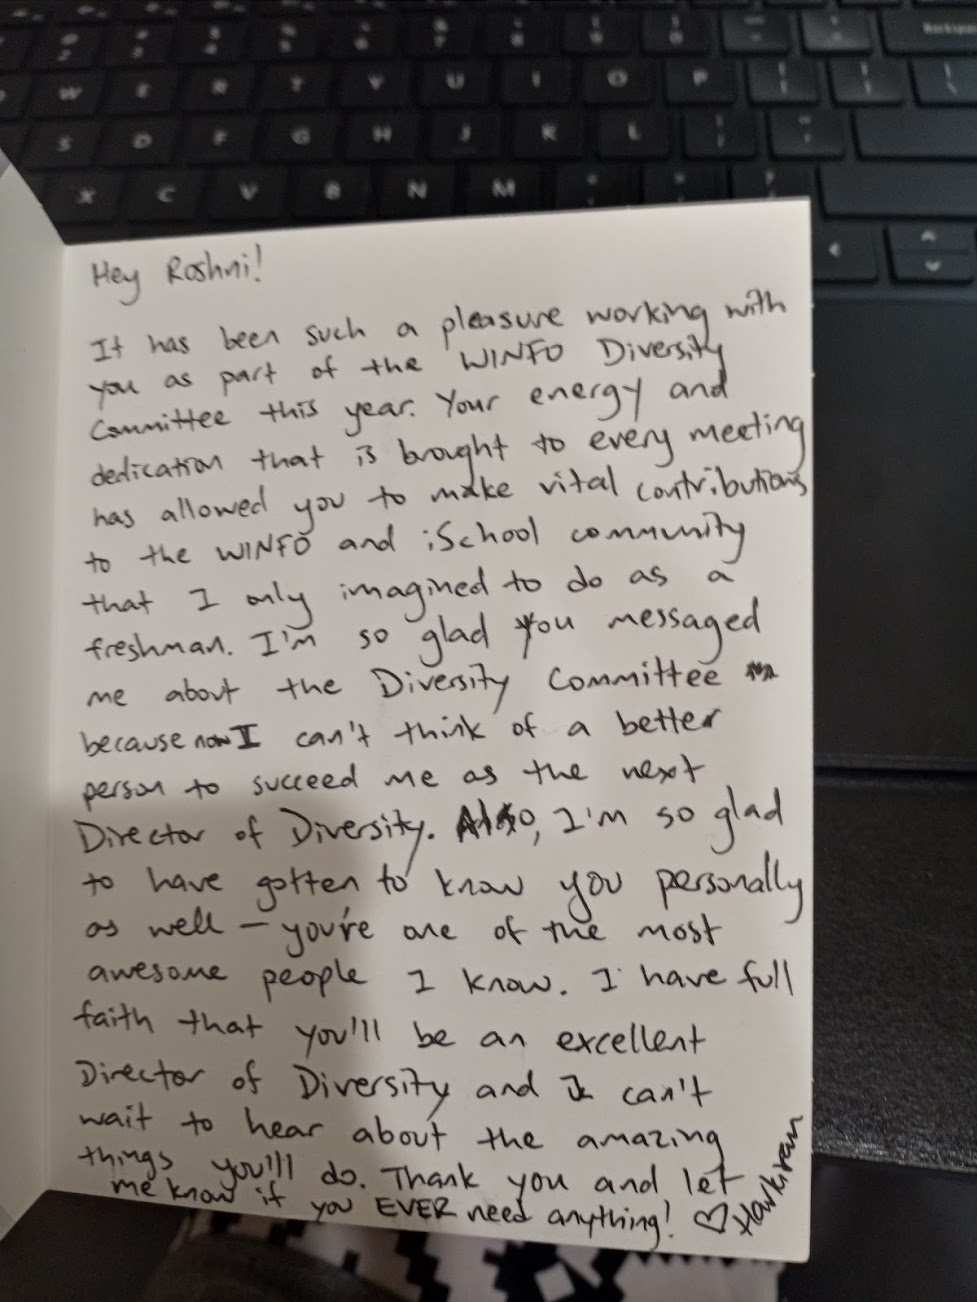 Backspace
W E R T Y U I O P
S D F G H J K L
X C V B N M
Hey Roshni!
It has been such a pleasure working with
you as part of the WINFO Diversity
Committee this year. Your energy and
dedication that is brought to every meeting
has allowed you to make vital contributions
to the WINFO and iSchool community
that I only imagined to do as a
freshman. I'm so glad you messaged
me about the Diversity Committee
because now I can't think of a better
person to succeed me as the next
Director of Diversity. Also, I'm so glad
to have gotten to know you personally
as well – you're one of the most
awesome people I know. I have full
faith that you'll be an excellent
Director of Diversity and I can't
wait to hear about the amazing
things you'll do. Thank you and let
me know if you EVER need anything! ♡ Harkiran